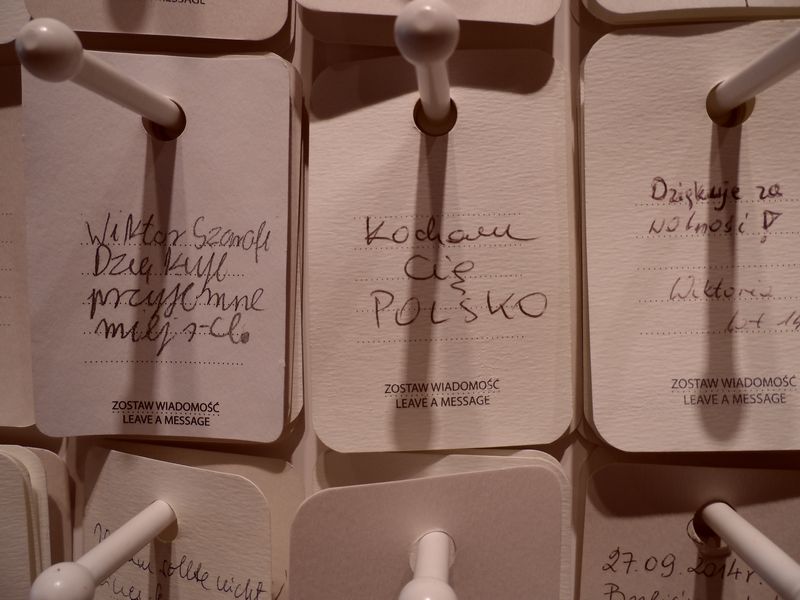 A MESSAGE
Wiktor
Dziękuje
przyjemne
miejsce.
ZOSTAW WIADOMOŚĆ
LEAVE A MESSAGE
Kocham
Cię
POLSKO
ZOSTAW WIADOMOŚĆ
LEAVE A MESSAGE
Dziękuje za
wolność!
Wiktoria
lat 14
ZOSTAW WIADOMOŚĆ
LEAVE A MESSAGE
sollte nicht
27.09.2014r.